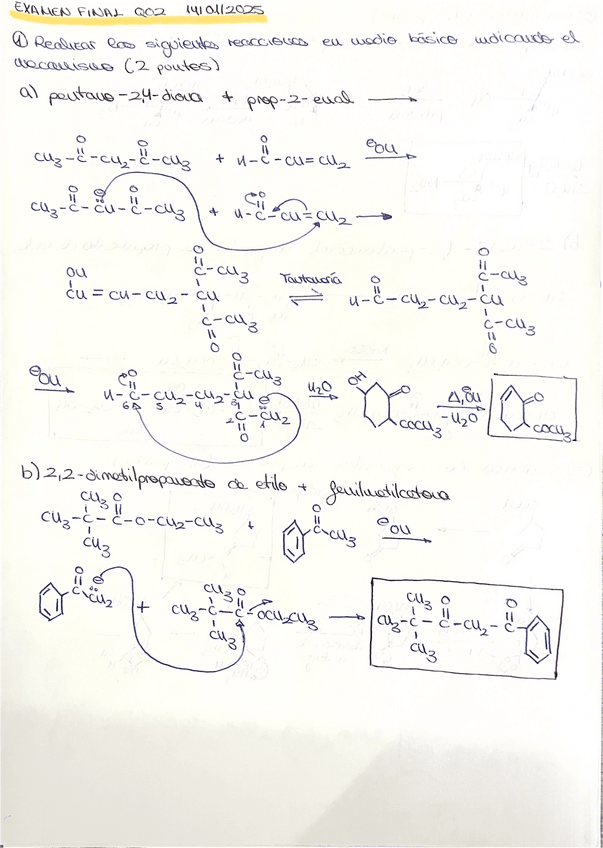 EXAMEN FINAL QO2 14/01/2025
① Realizar las siguientes reacciones en medio básico indicando el
mecanismo (2 puntos)
a) pentano-2,4-diona + prop-2-enal →
CH₃-C(=O)-CH₂-C(=O)-CH₃ + H-C(=O)-CH=CH₂ ⊖OH →
CH₃-C(=O)-C̈H⊖-C(=O)-CH₃ + H-C(=O)-CH=CH₂ →
OH
CH=CH-CH₂-CH
O=C-CH₃
C-CH₃
O
Tautomería ⇌
H-C(=O)-CH₂-CH₂-CH
O=C-CH₃
C-CH₃
O
⊖OH → H-C(=O)-CH₂-CH₂-CH
6 5 4 3
O=C-CH₃
2 C-C̈H₂⊖ 1
O
H₂O →
OH O
COCH₃
Δ, ⊖OH
-H₂O →
O
COCH₃
b) 2,2-dimetilpropanoato de etilo + fenilmetilcetona
CH₃ O
CH₃-C-C-O-CH₂-CH₃ + O=C-CH₃ ⊖OH →
CH₃
O=C-C̈H₂⊖ +
CH₃ O
CH₃-C-C-OCH₂CH₃ →
CH₃
CH₃ O O
CH₃-C-C-CH₂-C
CH₃